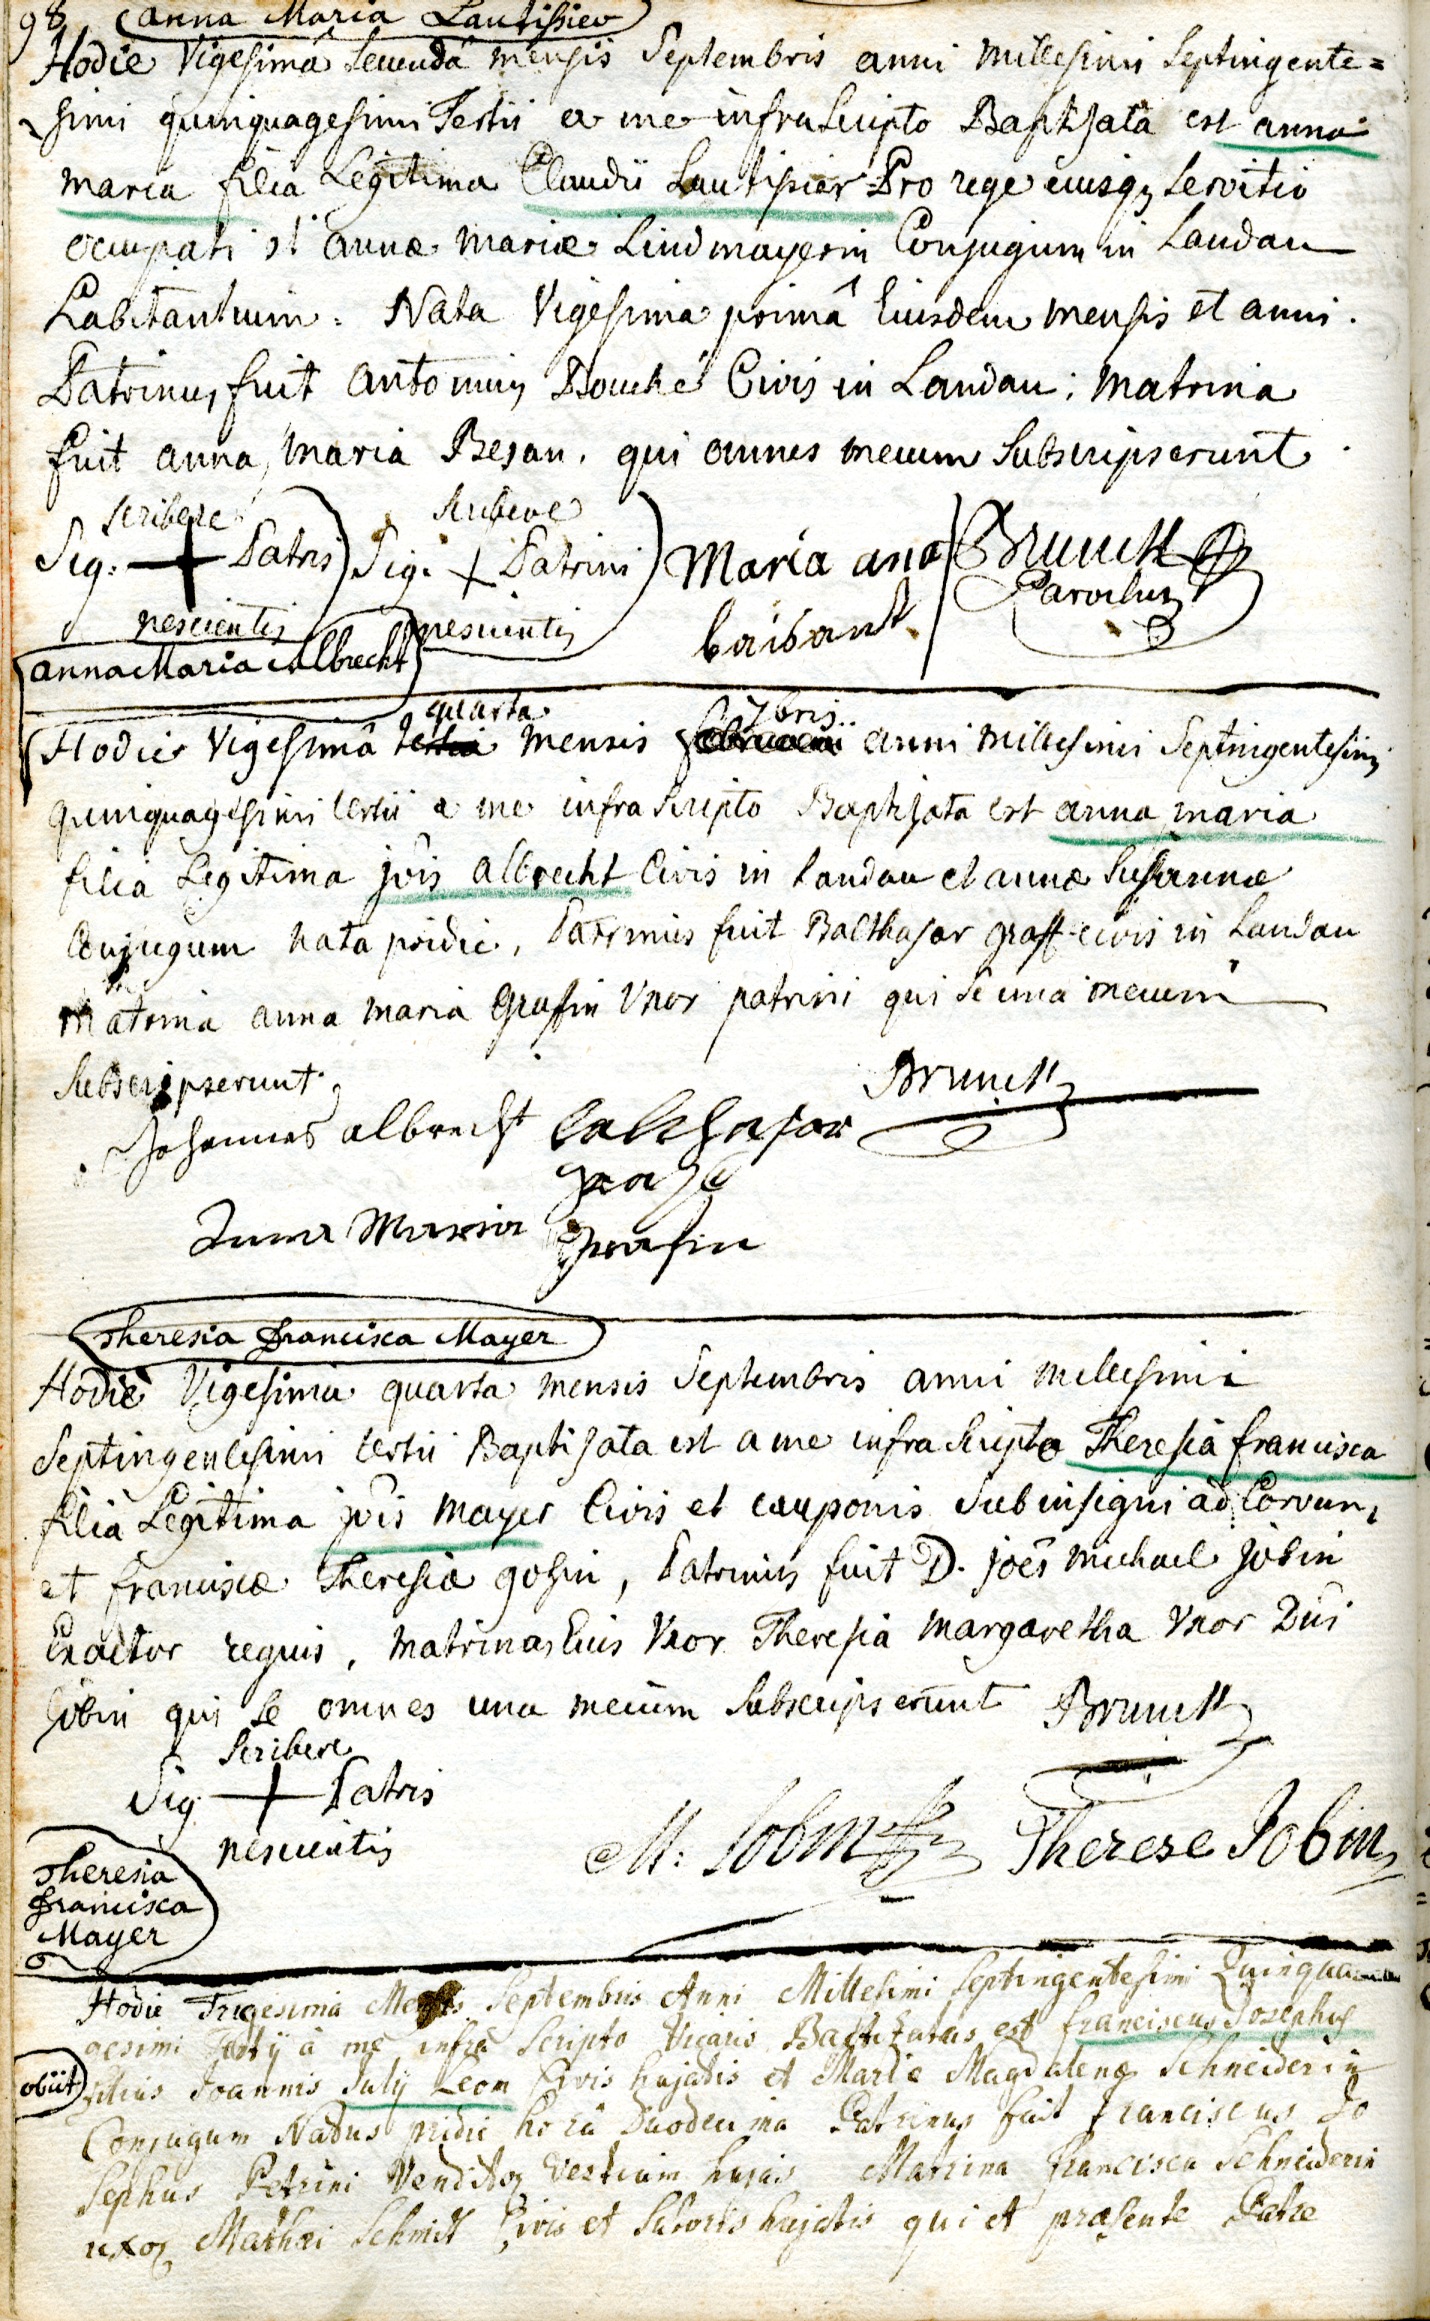 98 anna Maria Lautissier
Hodie Vigesimâ secundâ mensis Septembris anni millesimi Septingente=
simi quinquagesimi Tertii a me infrascripto Baptisata est anna
maria filia Legitima Claudii Lautisier Pro rege eiusq servitio
occupati et annæ mariæ Lindmayerin Conjugum in Landau
habitantium. Nata Vigesima primâ Eiusdem mensis et anni.
Patrinus fuit antonius Bouché Civis in Landau; matrina
fuit anna maria Besan. qui omnes mecum subscripserunt.
scribere scribere
Sig: + Patris Sig: + Patrini Maria ana Brunck
nescientis nescientis baisant Parochus
anna Maria Albrecht
quarta 7bris
Hodie Vigesimâ tertia mensis anni millesimi Septingentesimi
quinquagesimi tertii a me infra scripto Baptisata est anna maria
filia Legitima jois albrecht Civis in Landau et annæ Susannæ
Conjugum nata pridie, Patrinus fuit Balthasar graff civis in Landau
matrina anna maria Graffin Uxor patrini qui se una mecum
subscripserunt. Brunck
Johannes albrecht balthasar
graff
Anna Maria grafin
Theresia Francisca Mayer
Hodie Vigesima quarta mensis Septembris anni millesimi
Septingentesimi tertii Baptisata est a me infra scripto Theresia francisca
filia Legitima jois mayer Civis et cauponis sub insigni ad Corvum,
et franciscæ Theresiæ gosin, Patrinus fuit D. joês michael jobin
Exactor regius, matrina Eius Uxor Theresia margaretha Uxor Dni
jobin qui se omnes una mecum subscripserunt Brunck
scribere
Sig + Patris
nescientis M: Jobin Therese Jobin
Theresia
Francisca
Mayer
Hodie Trigesima Septembris Anni Millesimi Septingentesimi Quinqua
gesimi tertij à me infrà Scripto Vicario Baptizatus est franciscus Josephus
obiit filius Joannis Julij Leon Civis hujatis et Mariæ Magdalenæ Schneiderin
Conjugum Natus pridie horâ Duodecima Patrinus fuit franciscus Jo
sephus Petrini Venditor Vestium hujas Matrina francisca Schneiderin
uxor Mathæi Schmitt Civis et Sutoris hujatis qui et præsente Patre